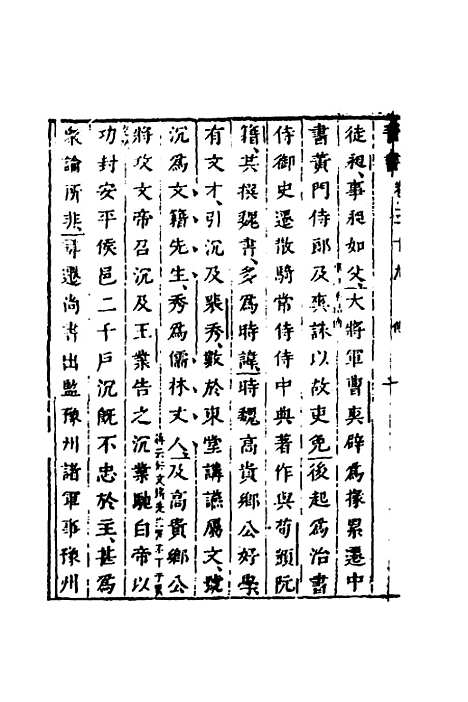 徒昶、事昶如父、大將軍曹爽辟爲掾累遷中
書黃門侍郎及爽誅以故吏免後起爲治書
侍御史遷散騎常侍侍中典著作與荀顗阮
籍、共撰魏書、多爲時諱、時魏高貴鄉公好學
有文才、引沉及裴秀、數於東堂講讌屬文、號
沉爲文籍先生、秀爲儒林丈人、及高貴鄉公
將攻文帝召沉及王業告之沉業馳白帝以
功封安平侯邑二千戶沉旣不忠於主、甚爲
衆論所非、尋遷尚書出監豫州諸軍事豫州